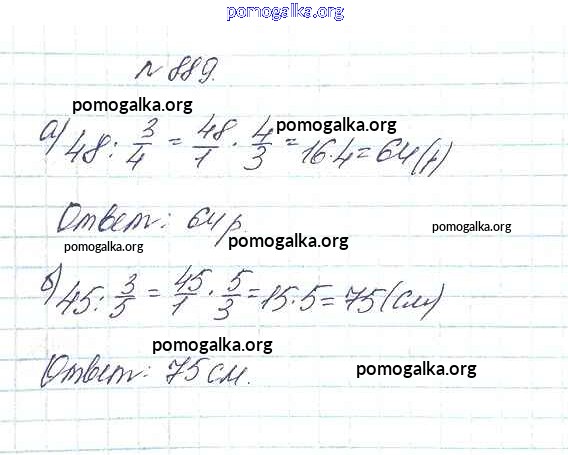 pomogalka.org
№ 889.
pomogalka.org
а) 48 : 3/4 = 48/1 · 4/3 = 16 · 4 = 64 (р)
pomogalka.org
Ответ: 64 р.
pomogalka.org
pomogalka.org
pomogalka.org
б) 45 : 3/5 = 45/1 · 5/3 = 15 · 5 = 75 (см)
pomogalka.org
Ответ: 75 см.
pomogalka.org